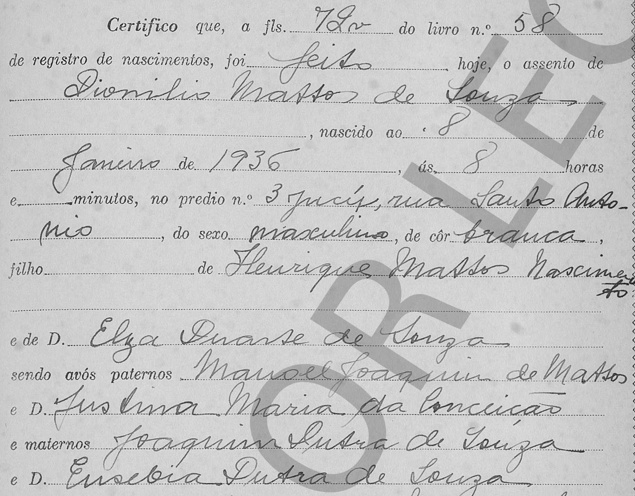 Certifico que, a fls. 72v do livro n.º 58
de registro de nascimentos, foi feito hoje, o assento de
Dionilio Mattos de Souza
, nascido ao 8 de
Janeiro de 1936, ás 8 horas
e minutos, no predio n.º 3 rua Santo Anto-
nio, do sexo masculino, de côr branca,
filho de Henrique Mattos Nascimen
to
e de D. Elza Duarte de Souza
sendo avós paternos Manoel Joaquim de Mattos
e D. Justina Maria da Conceicão
e maternos Joaquim Dutra de Souza
e D. Eusebia Dutra de Souza
OR LEG